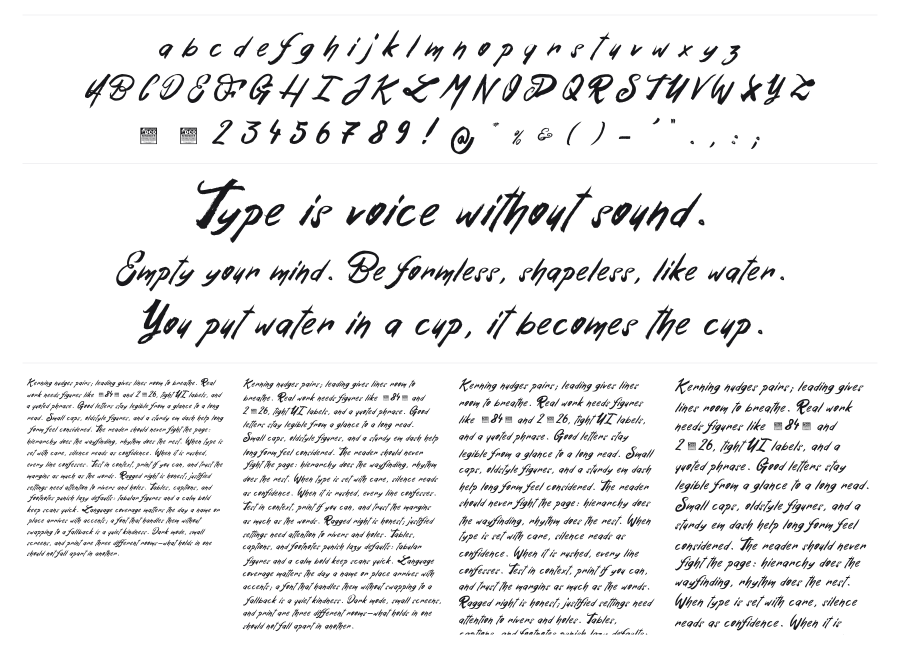 a b c d e f g h i j k l m n o p q r s t u v w x y z
A B C D E F G H I J K L M N O P Q R S T U V W X Y Z
2 3 4 5 6 7 8 9 ! @ " % & ( ) – ' " . , : ;
Type is voice without sound.
Empty your mind. Be formless, shapeless, like water.
You put water in a cup, it becomes the cup.
Kerning nudges pairs; leading gives lines room to breathe. Real
work needs figures like 84 and 2 26, tight UI labels, and
a quoted phrase. Good letters stay legible from a glance to a long
read. Small caps, oldstyle figures, and a sturdy em dash help long
form feel considered. The reader should never fight the page:
hierarchy does the wayfinding, rhythm does the rest. When type is
set with care, silence reads as confidence. When it is rushed,
every line confesses. Test in context, print if you can, and trust the
margins as much as the words. Ragged right is honest; justified
settings need attention to rivers and holes. Tables, captions, and
footnotes punish lazy defaults: tabular figures and a calm bold
keep scans quick. Language coverage matters the day a name or
place arrives with accents; a font that handles them without
swapping to a fallback is a quiet kindness. Dark mode, small
screens, and print are three different rooms—what holds in one
should not fall apart in another.
Kerning nudges pairs; leading gives lines room to
breathe. Real work needs figures like 84 and
2 26, tight UI labels, and a quoted phrase. Good
letters stay legible from a glance to a long read.
Small caps, oldstyle figures, and a sturdy em dash help
long form feel considered. The reader should never
fight the page: hierarchy does the wayfinding, rhythm
does the rest. When type is set with care, silence reads
as confidence. When it is rushed, every line confesses.
Test in context, print if you can, and trust the margins
as much as the words. Ragged right is honest; justified
settings need attention to rivers and holes. Tables,
captions, and footnotes punish lazy defaults: tabular
figures and a calm bold keep scans quick. Language
coverage matters the day a name or place arrives with
accents; a font that handles them without swapping to a
fallback is a quiet kindness. Dark mode, small screens,
and print are three different rooms—what holds in one
should not fall apart in another.
Kerning nudges pairs; leading gives lines
room to breathe. Real work needs figures
like 84 and 2 26, tight UI labels,
and a quoted phrase. Good letters stay
legible from a glance to a long read. Small
caps, oldstyle figures, and a sturdy em dash
help long form feel considered. The reader
should never fight the page: hierarchy does
the wayfinding, rhythm does the rest. When
type is set with care, silence reads as
confidence. When it is rushed, every line
confesses. Test in context, print if you can,
and trust the margins as much as the words.
Ragged right is honest; justified settings need
attention to rivers and holes. Tables,
captions, and footnotes punish lazy defaults:
Kerning nudges pairs; leading gives
lines room to breathe. Real work
needs figures like 84 and
2 26, tight UI labels, and a
quoted phrase. Good letters stay
legible from a glance to a long read.
Small caps, oldstyle figures, and a
sturdy em dash help long form feel
considered. The reader should never
fight the page: hierarchy does the
wayfinding, rhythm does the rest.
When type is set with care, silence
reads as confidence. When it is